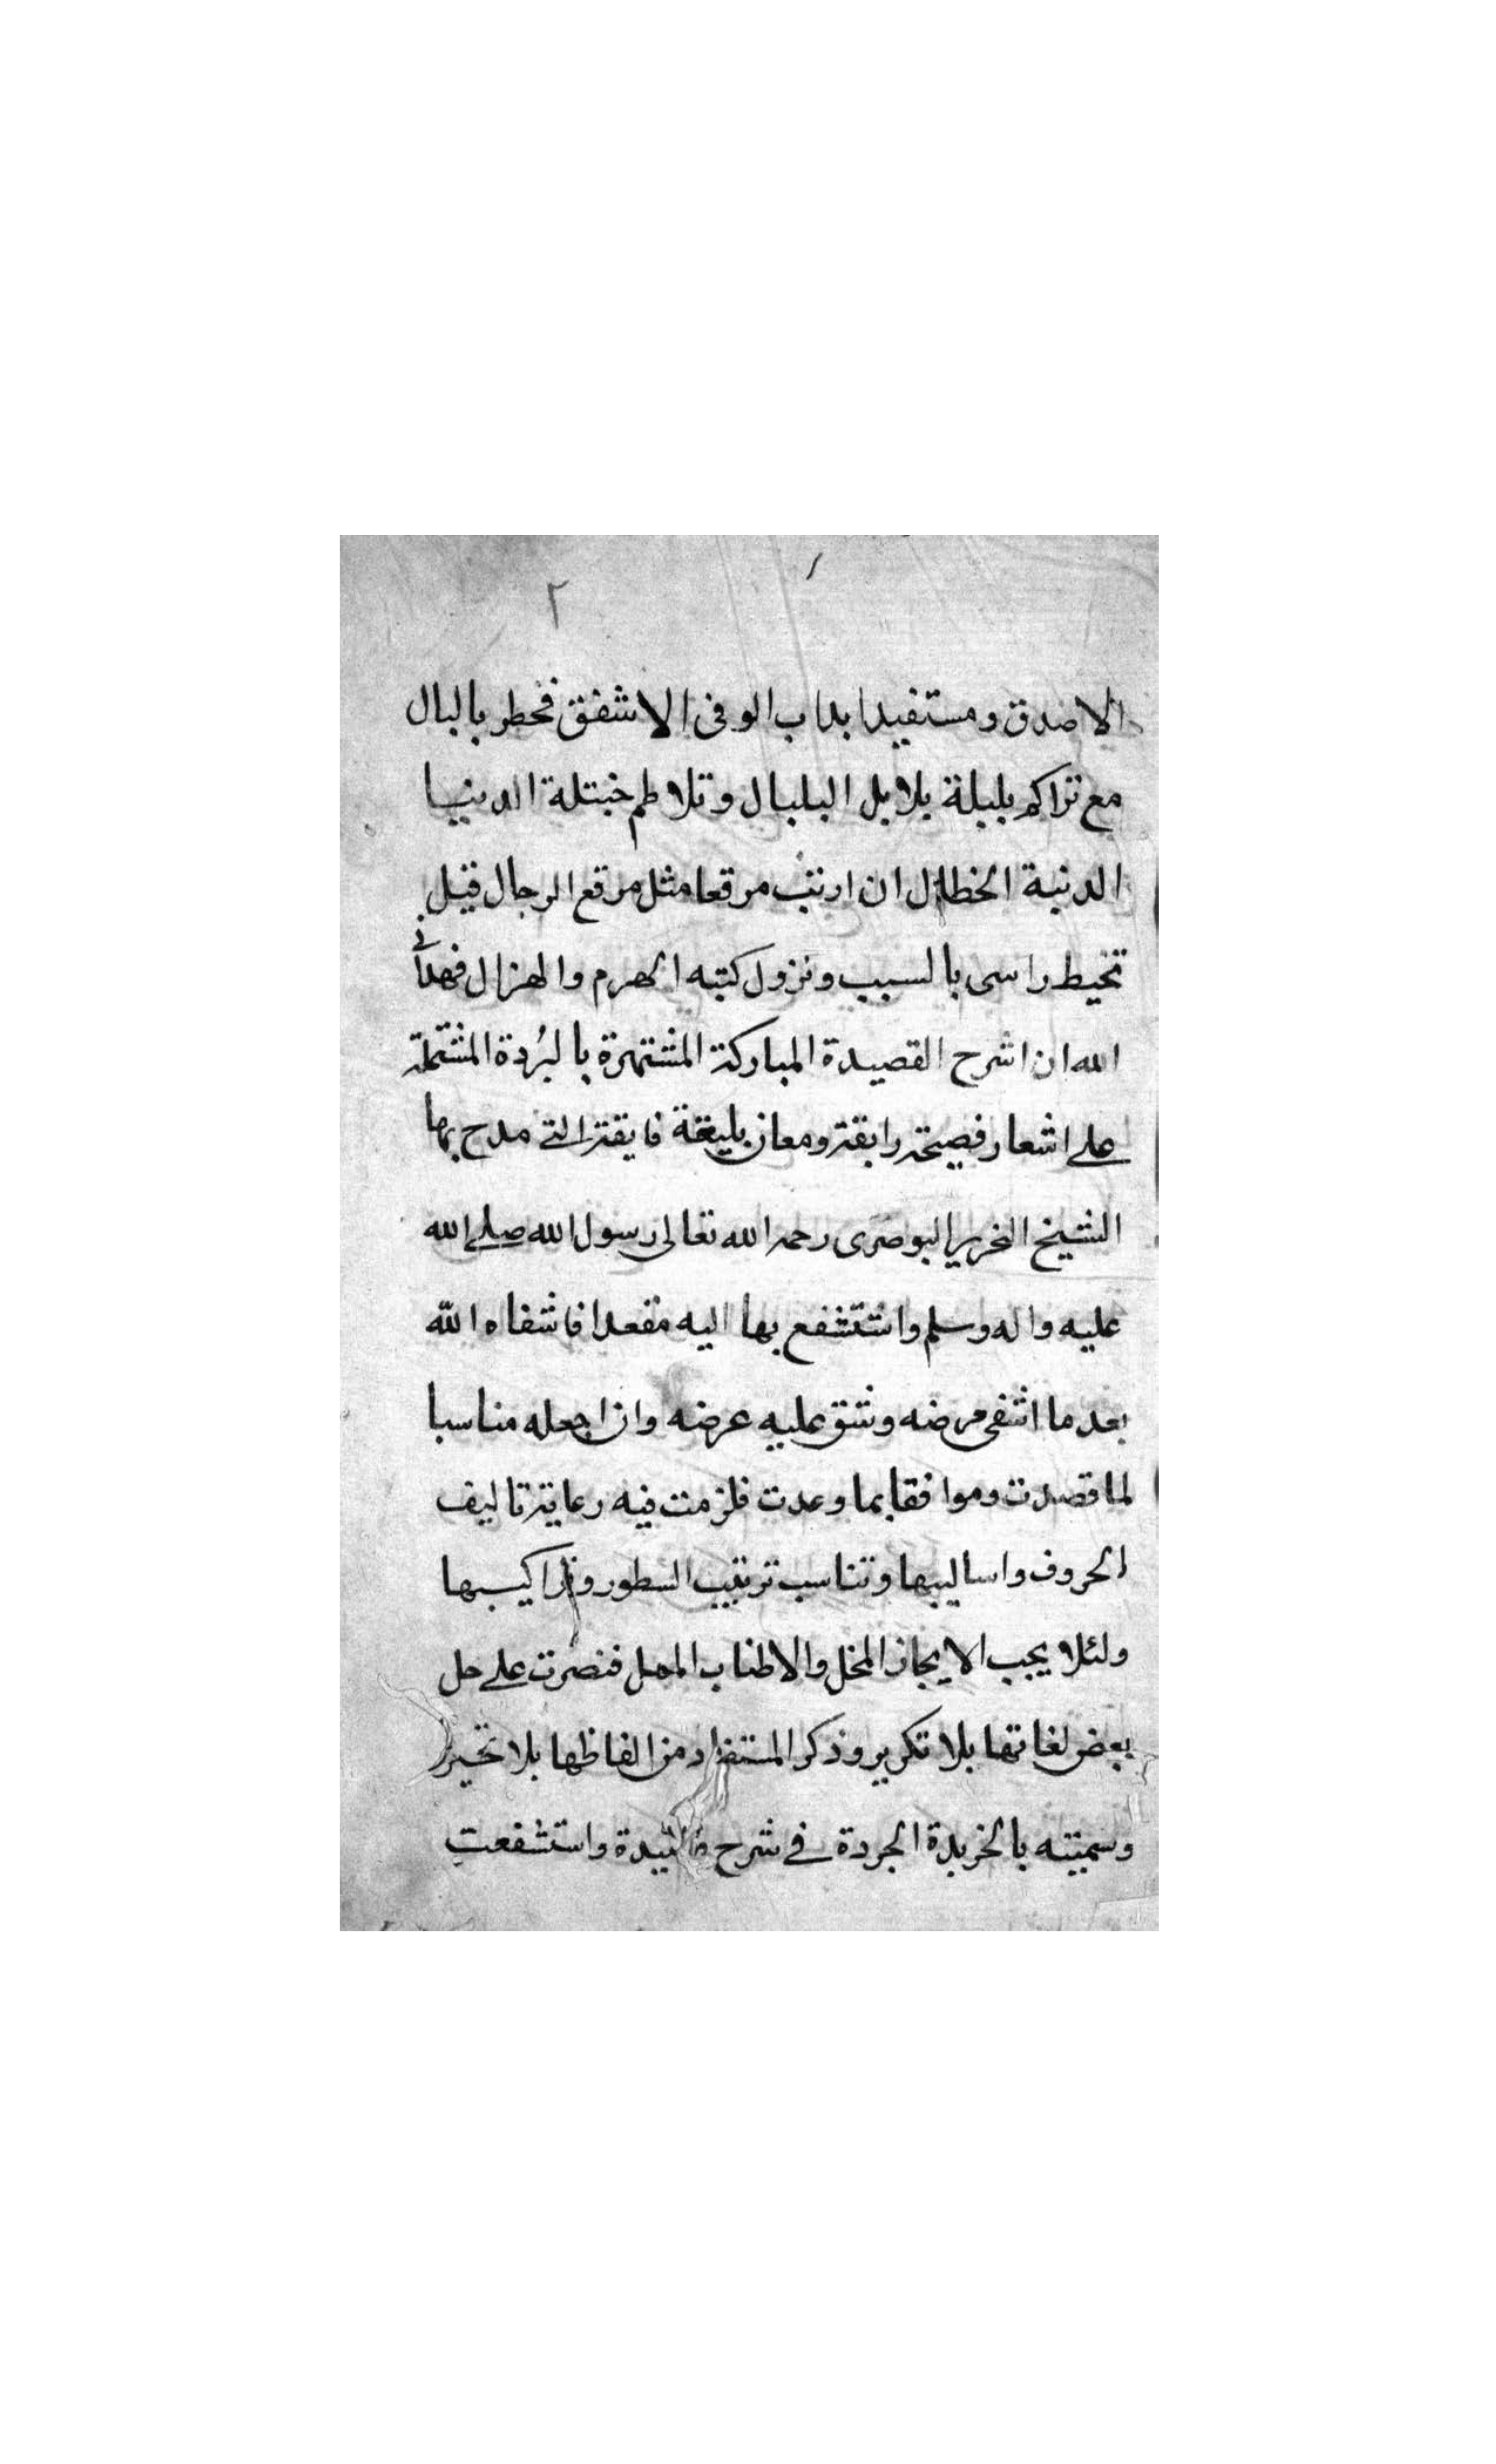 ٢
الاصدق ومستفيدا بداب الوفى الاشفق فخطر بالبال
مع تراكم بلبلة بلابل البلبال وتلاطم خبتلة الدنيا
الدنية الخطال ان ارتب مرقعا مثل مرقع الرجال قبل
تخيط راسى بالسبب ونزول كتبه الهرم والهزال فهدانى
الله ان اشرح القصيدة المباركة المشتهرة بالبُردة المشتملة
على اشعار فصيحة رايقة ومعان بليغة فايقة التى مدح بها
الشيخ النحرير البوصرى رحمه الله تعالى رسول الله صلى الله
عليه واله وسلم واستشفع بها اليه مقعدا فاشفاه الله
بعد ما اشفى مرضه وشق عليه عرضه وان اجعله مناسبا
لما قصدت وموافقا بما وعدت فلزمت فيه رعاية تاليف
الحروف واساليبها وتناسب ترتيب السطور وتراكيبها
ولئلا يجب الايجاز المخل والاطناب الممل فنصرت على حل
بعض لغاتها بلا تكرير وذكر المستفاد من الفاظها بلا تحير
وسميته بالخريدة الجردة فى شرح واستشفعت